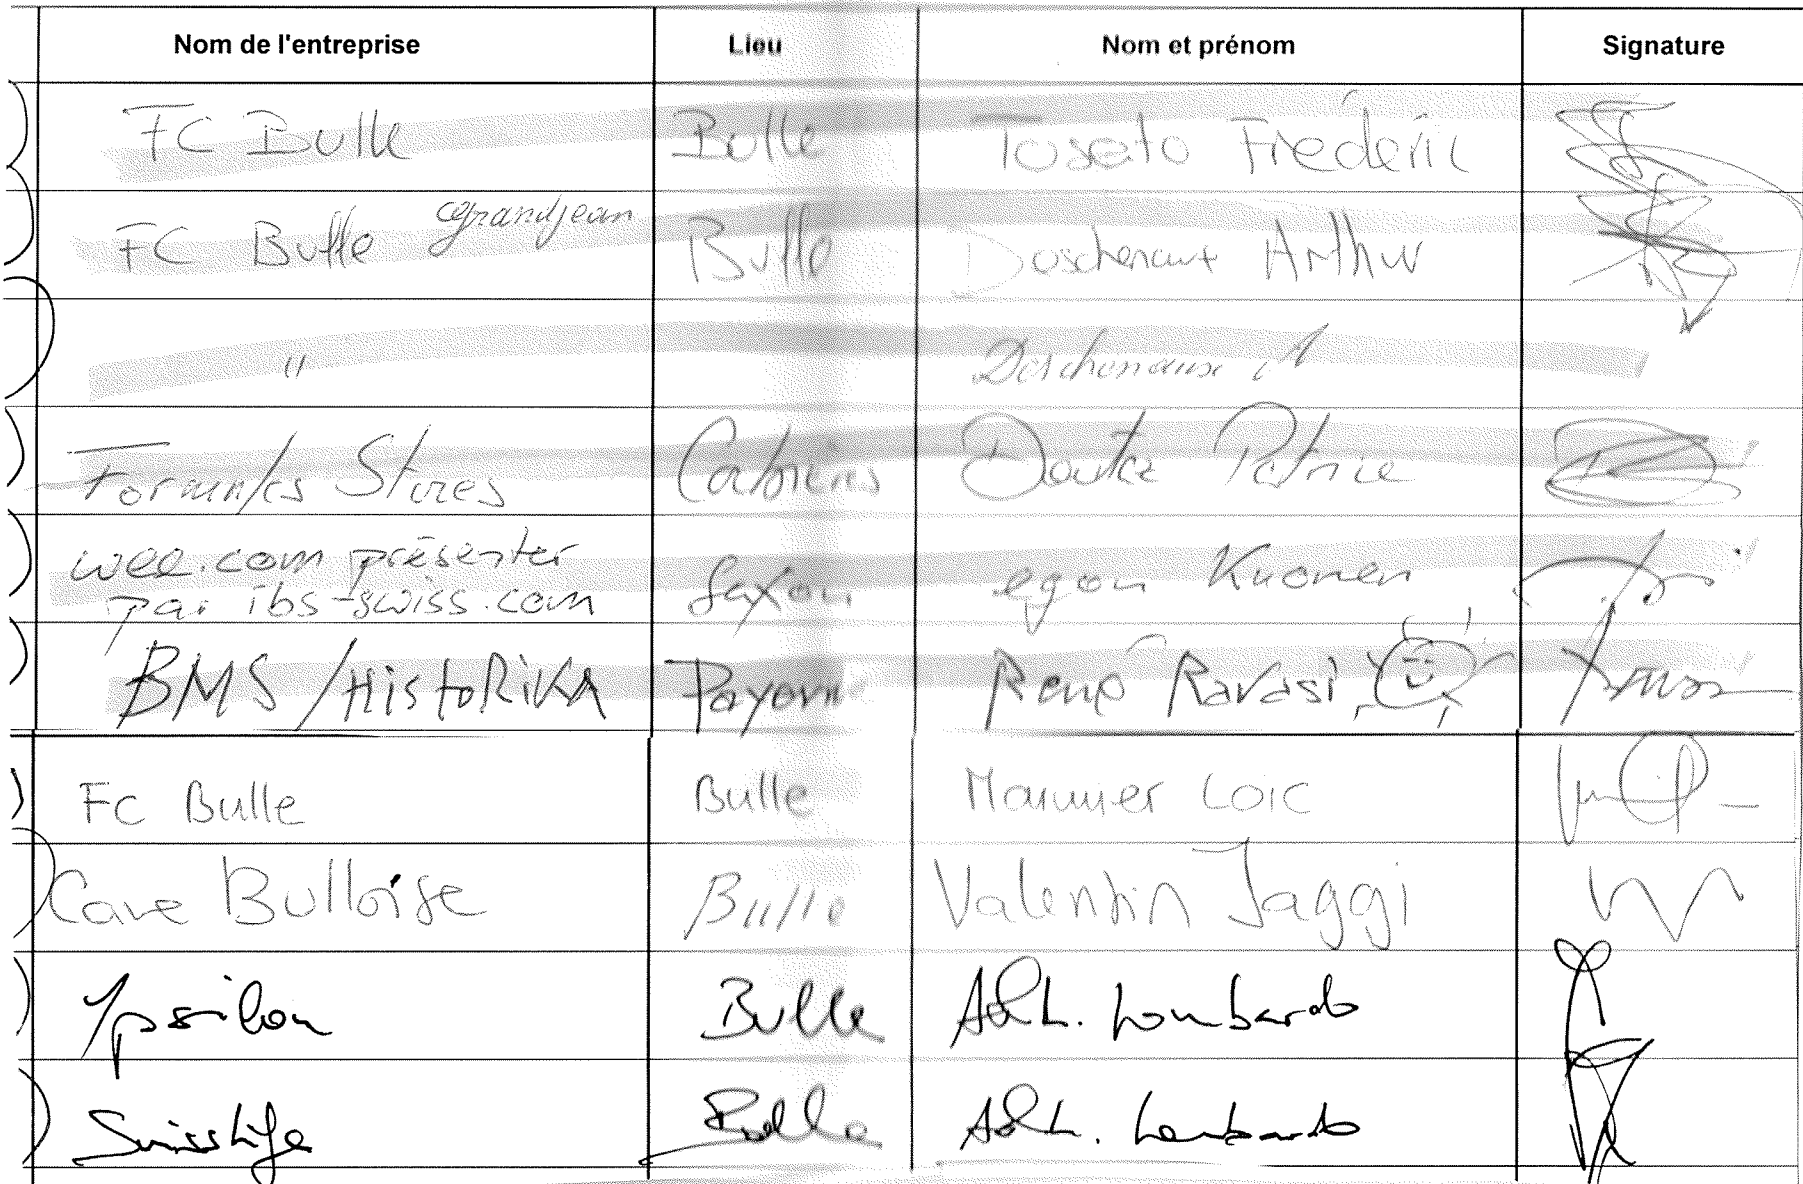 Nom de l'entreprise Lieu Nom et prénom Signature
FC Bulle Bulle Tosato Frédéric
Grandjean
FC Bulle Bulle Deschenaux Arthur
" Deschenaux A
Stores Doutaz Patrice
wee.com présenter
par ibs-swiss.com Saxon egon Kuonen
BMS / HistoRiKA Payerne René Ravasi
Fc Bulle Bulle Loïc
Cave Bulloise Bulle Valentin Jaggi
Ypsilon Bulle Lombardo
SwissLife Bulle Lombardo